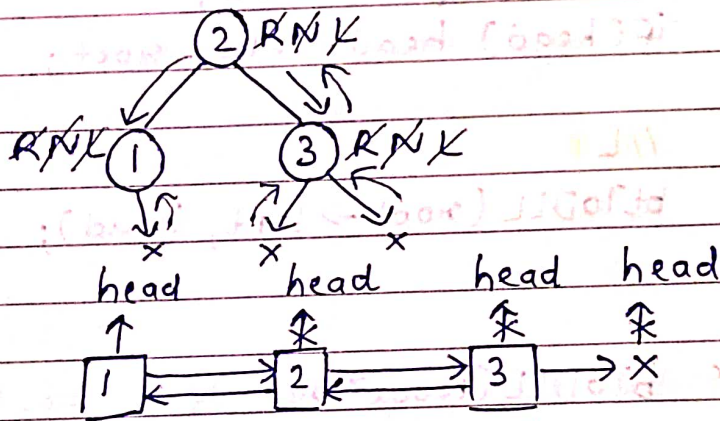 2 R N L
R N L 1 3 R N L
x x x
head head head head
1 2 3 x